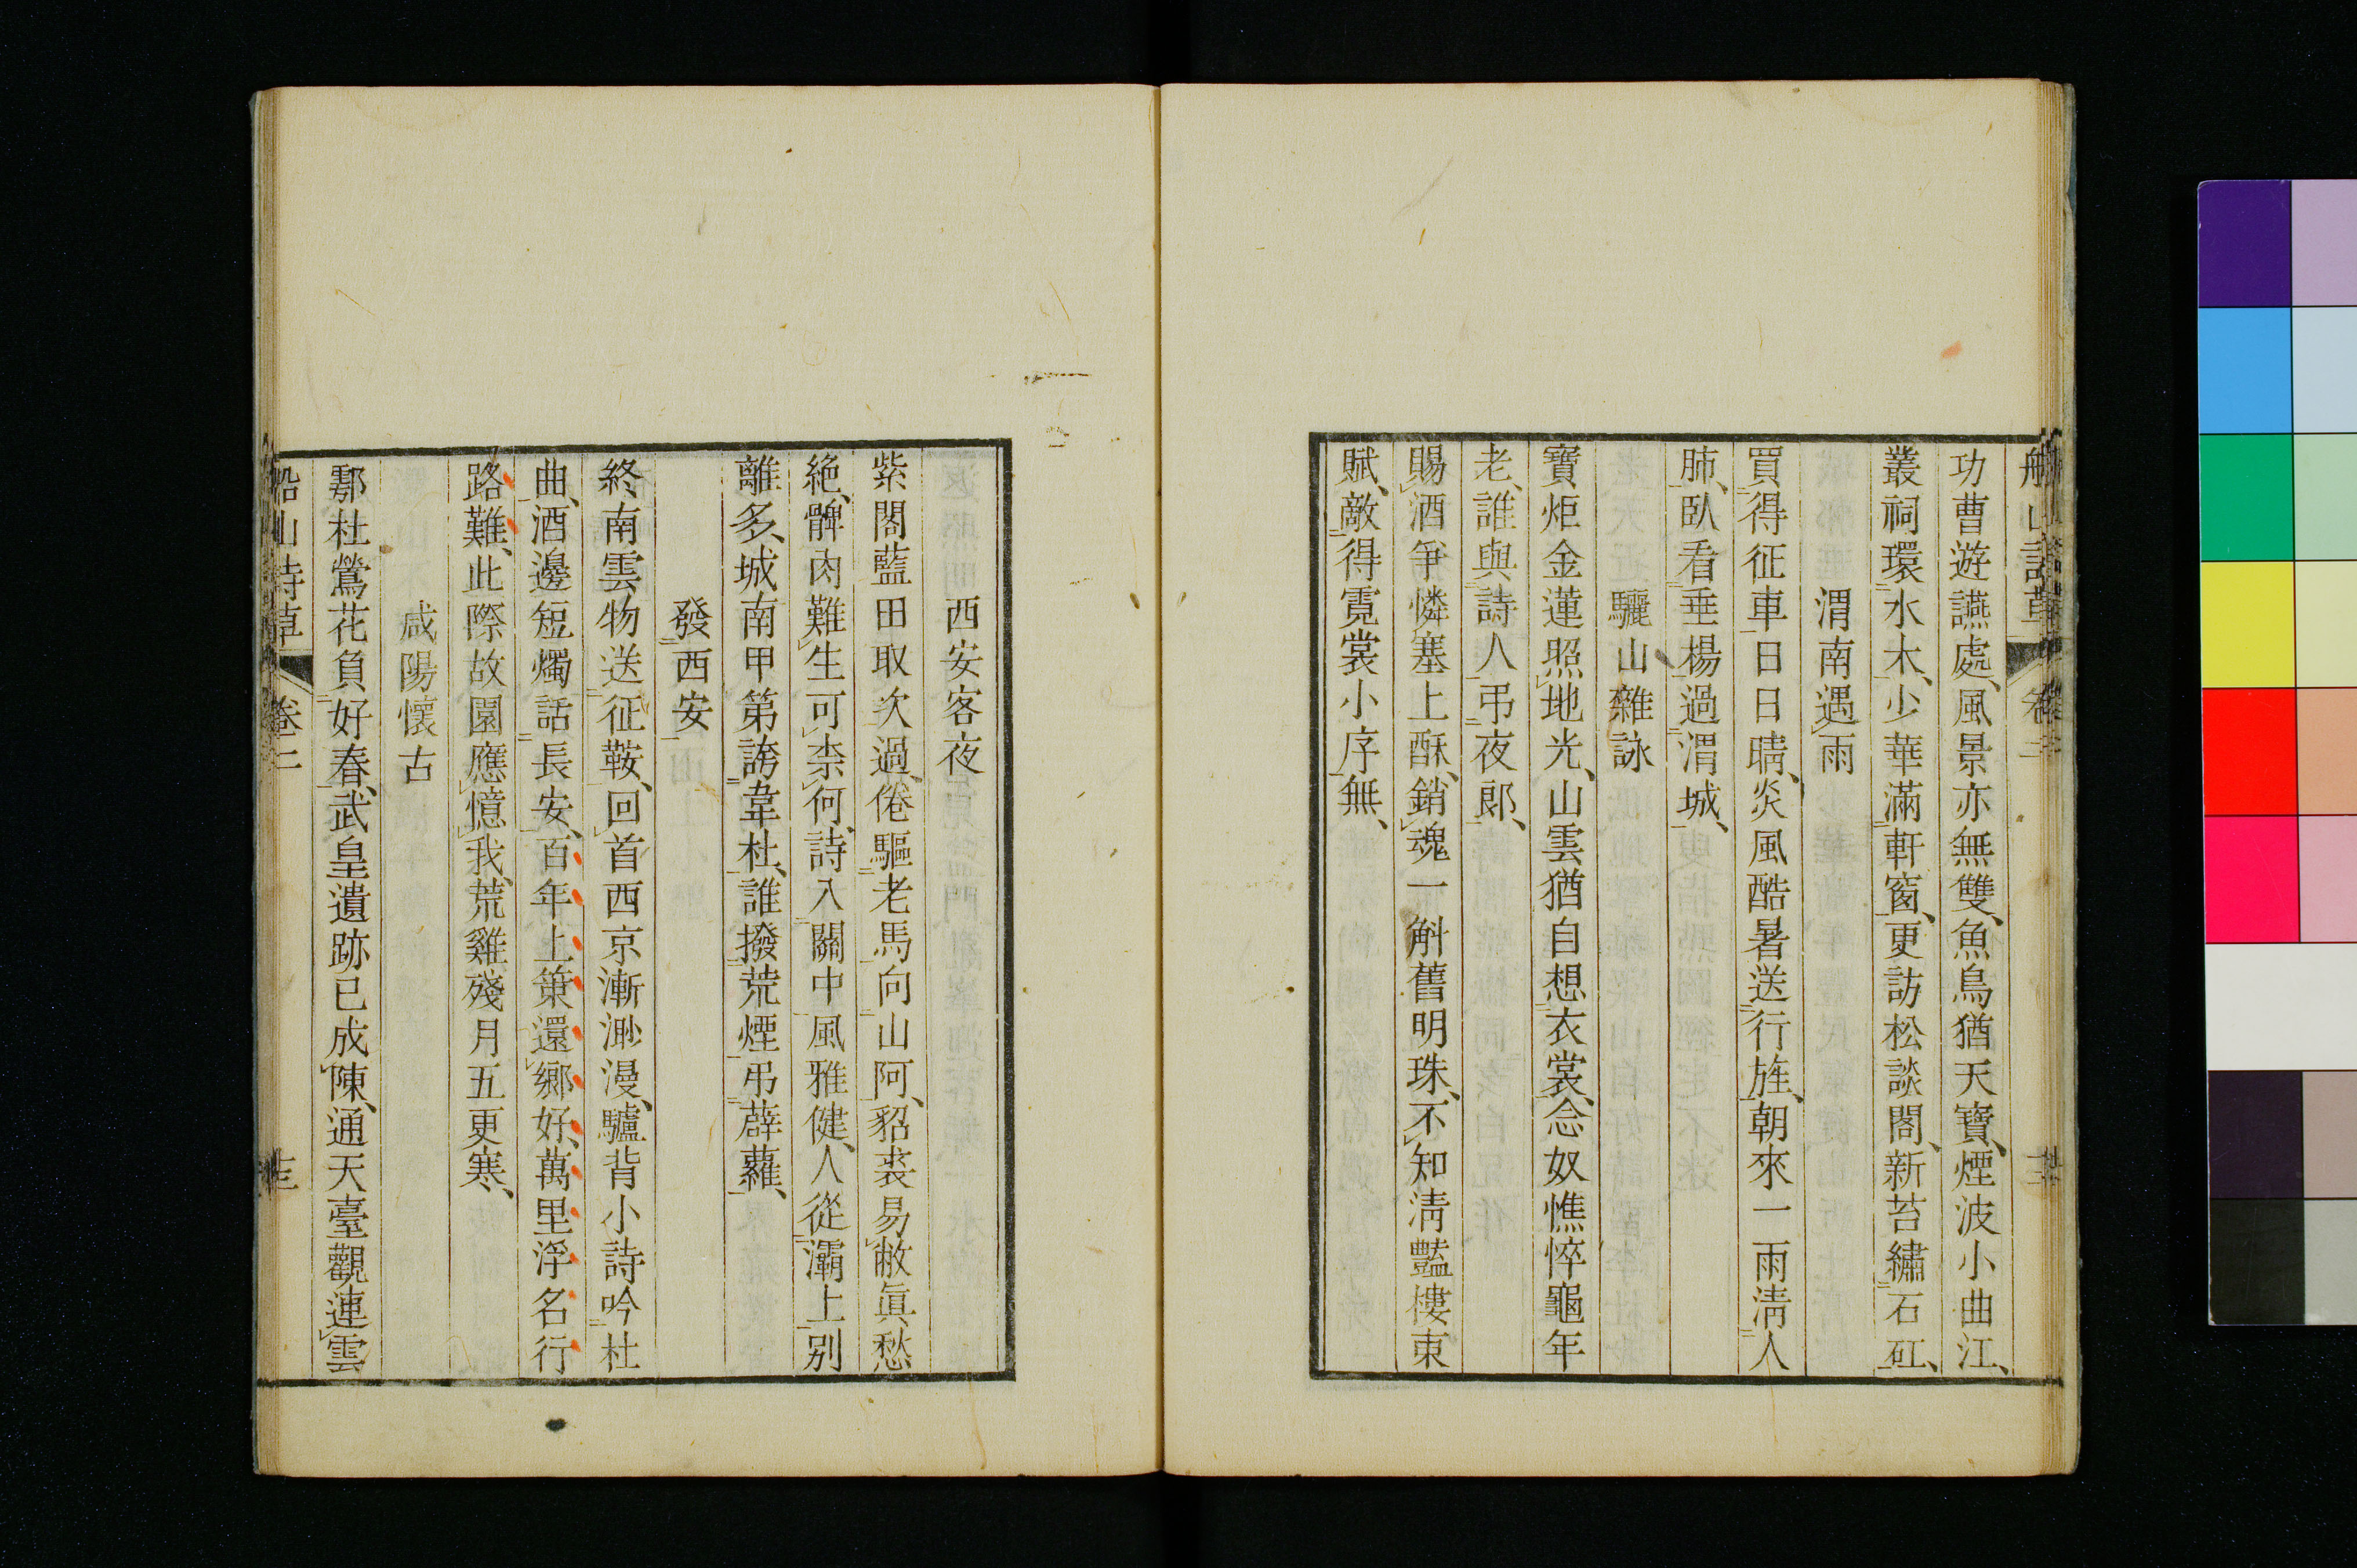 船山詩草 卷二
功曹遊讌處、風景亦無雙、魚鳥猶天寶、煙波小曲江、
叢祠環水木、少華滿軒窗、更訪松談閣、新苔繡石矼、
渭南遇雨
買得征車日日晴、炎風酷暑送行旌、朝來一雨淸人
肺、臥看垂楊過渭城、
驪山雜詠
寶炬金蓮照地光、山雲猶自想衣裳、念奴憔悴龜年
老、誰與詩人弔夜郎、
賜酒爭憐塞上酥、銷魂一斛舊明珠、不知淸豔樓東
賦、敵得霓裳小序無、
西安客夜
紫閣藍田取次過、倦驅老馬向山阿、貂裘易敝眞愁
絶、髀肉難生可柰何、詩入關中風雅健、人從灞上別
離多、城南甲第誇韋杜、誰撥荒煙弔薜蘿、
發西安
終南雲物送征鞍、回首西京漸渺漫、驢背小詩吟杜
曲、酒邊短燭話長安、百年上策還鄉好、萬里浮名行
路難、此際故園應憶我、荒雞殘月五更寒、
咸陽懷古
鄠杜鶯花負好春、武皇遺跡已成陳、通天臺觀連雲
船山詩草 卷二 十三